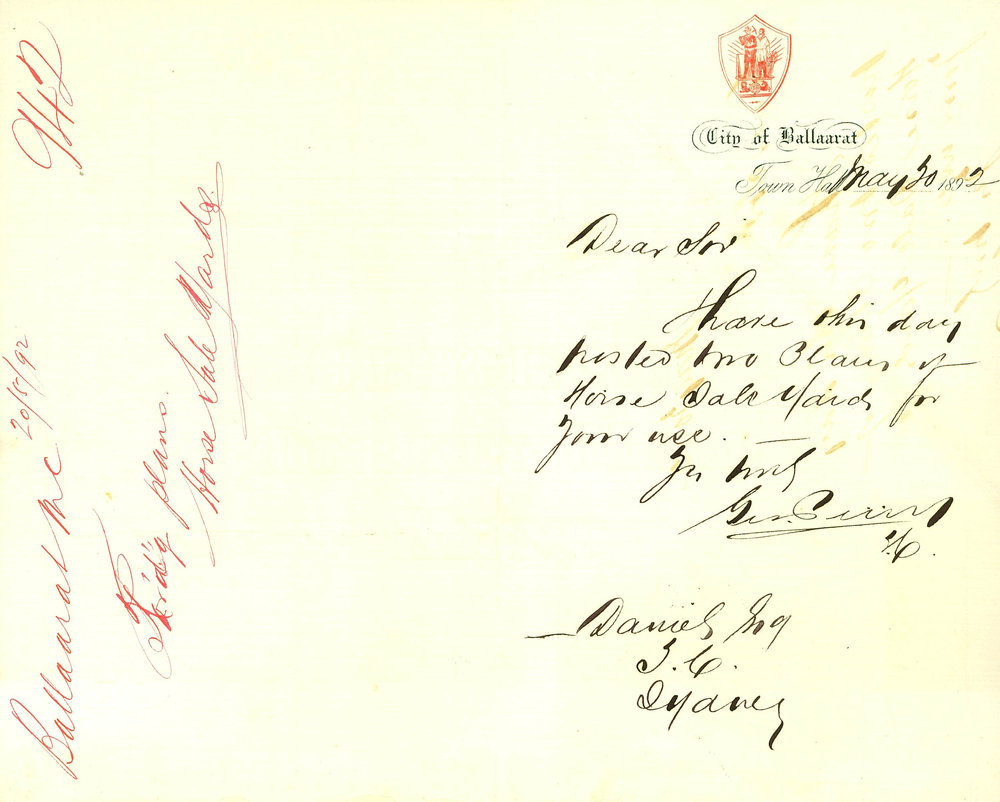 City of Ballaarat
Town Hall May 20 1892
Dear Sir
I have this day
posted two Plans of
Horse Sale Yards for
your use.
Yrs truly
Geo. Perry
T.C.
Daniels Esq
T.C.
Sydney
Ballaarat M.C 20/5/92
Forwdg plans.
Horse Sale Yards.